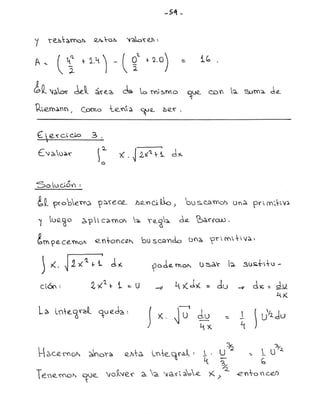 -54-
y restamos estos valores:
A = ( 4²/2 + 2.4 ) - ( 0²/2 + 2.0 ) = 16 .
El valor del área da lo mismo que con la suma de
Riemann, como tenía que ser.
Ejercicio 3.
Evaluar ∫₀² x . √(2x²+1) dx
Solución:
El problema parece sencillo, buscamos una primitiva
y luego aplicamos la regla de Barrow.
Empecemos entonces buscando una primitiva:
∫ x. √(2x²+1) dx podemos usar la sustitu-
ción: 2x²+1 = u → 4x dx = du → dx = du/4x
La integral queda: ∫ x. √u du/4x = 1/4 ∫ u^½ du
Hacemos ahora esta integral: 1/4 . u^(3/2)/(3/2) = 1/6 u^(3/2)
Tenemos que volver a la variable x, entonces